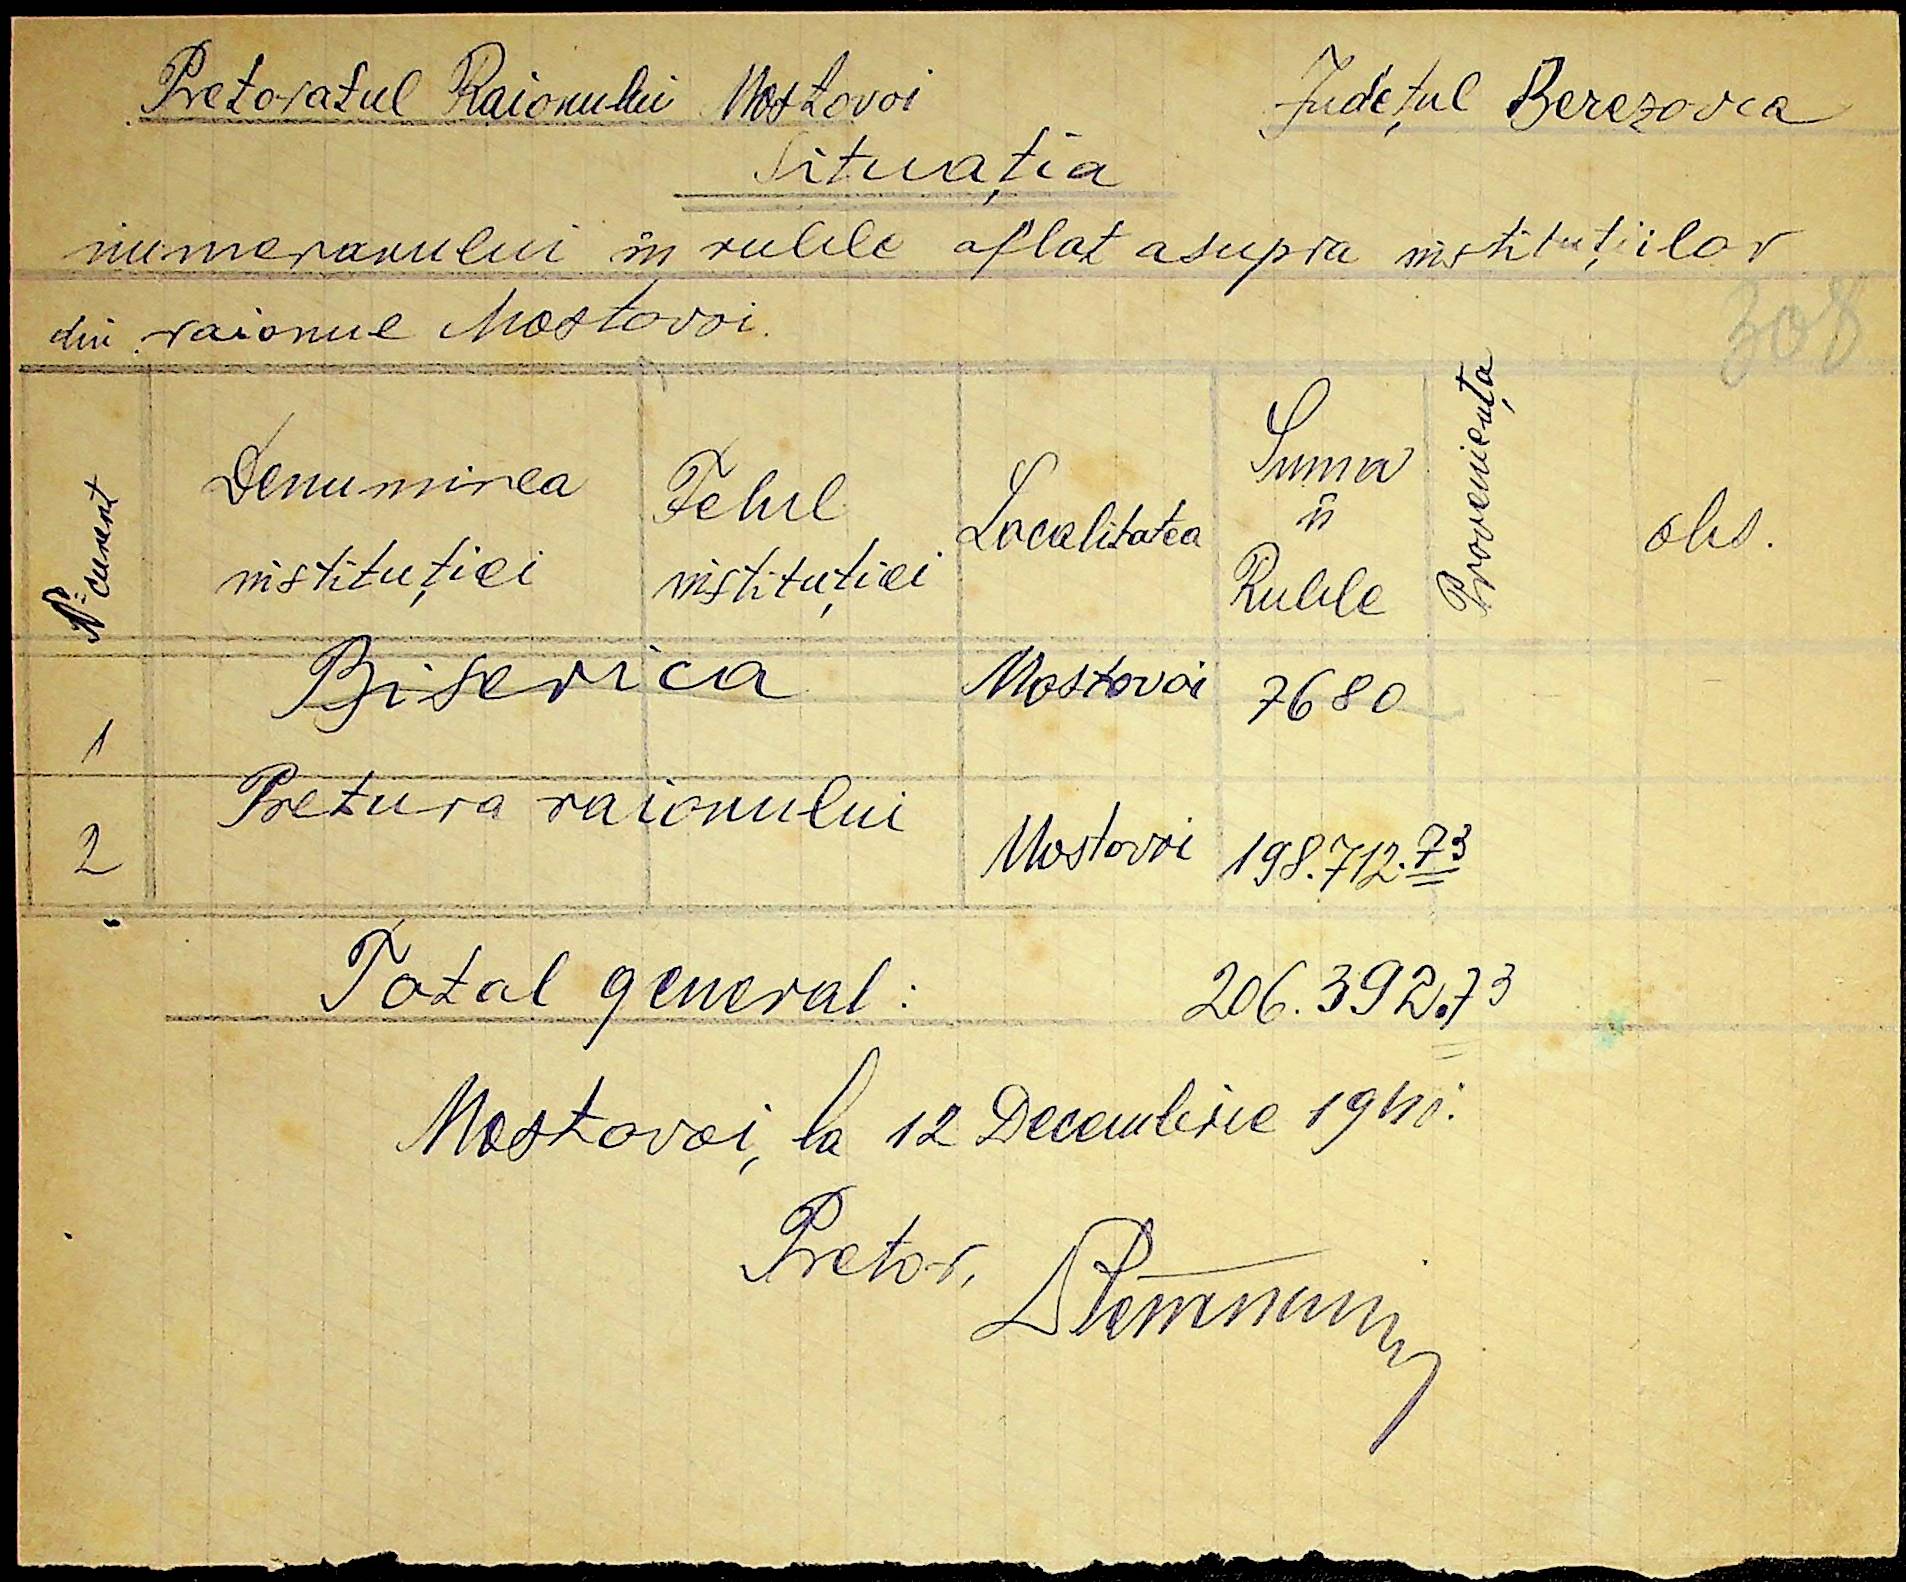 Pretoratul Raionului Mostovoi Județul Berezovca
Situația
numerarului în ruble aflat asupra instituțiilor
din raionul Mostovoi.
308
No curent Denumirea instituției Felul instituției Localitatea Suma în Ruble Proveniența obs.
1 Biserica Mostovoi 7680
2 Pretura raionului Mostovoi 198.712.73
Total general: 206.392.73
Mostovoi, la 12 Decembrie 1941.
Pretor,